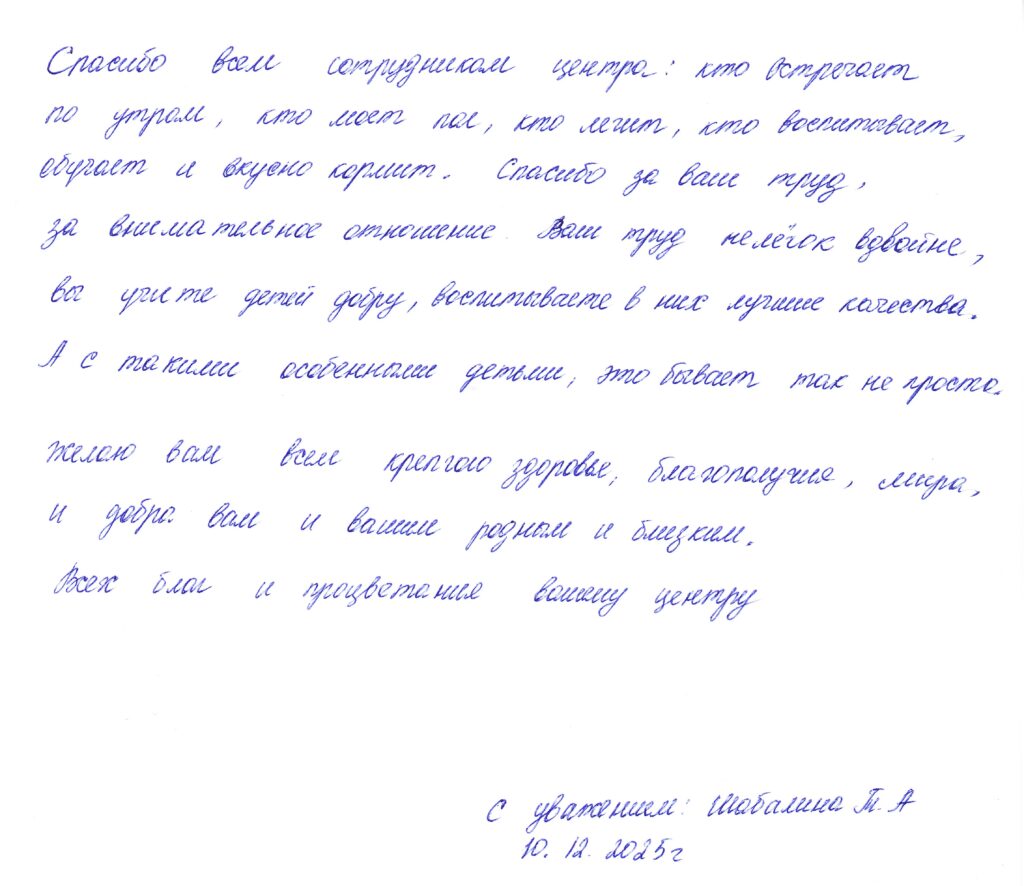 Спасибо всем сотрудникам центра: кто встречает
по утрам, кто моет пол, кто лечит, кто воспитывает,
обучает и вкусно кормит. Спасибо за ваш труд,
за внимательное отношение. Ваш труд нелёгок вдвойне,
вы учите детей добру, воспитываете в них лучшие качества.
А с такими особенными детьми, это бывает так не просто.
Желаю вам всем крепкого здоровья, благополучия, мира,
и добра вам и вашим родным и близким.
Всех благ и процветания вашему центру
С уважением: Шабалина Т. А
10. 12. 2025г